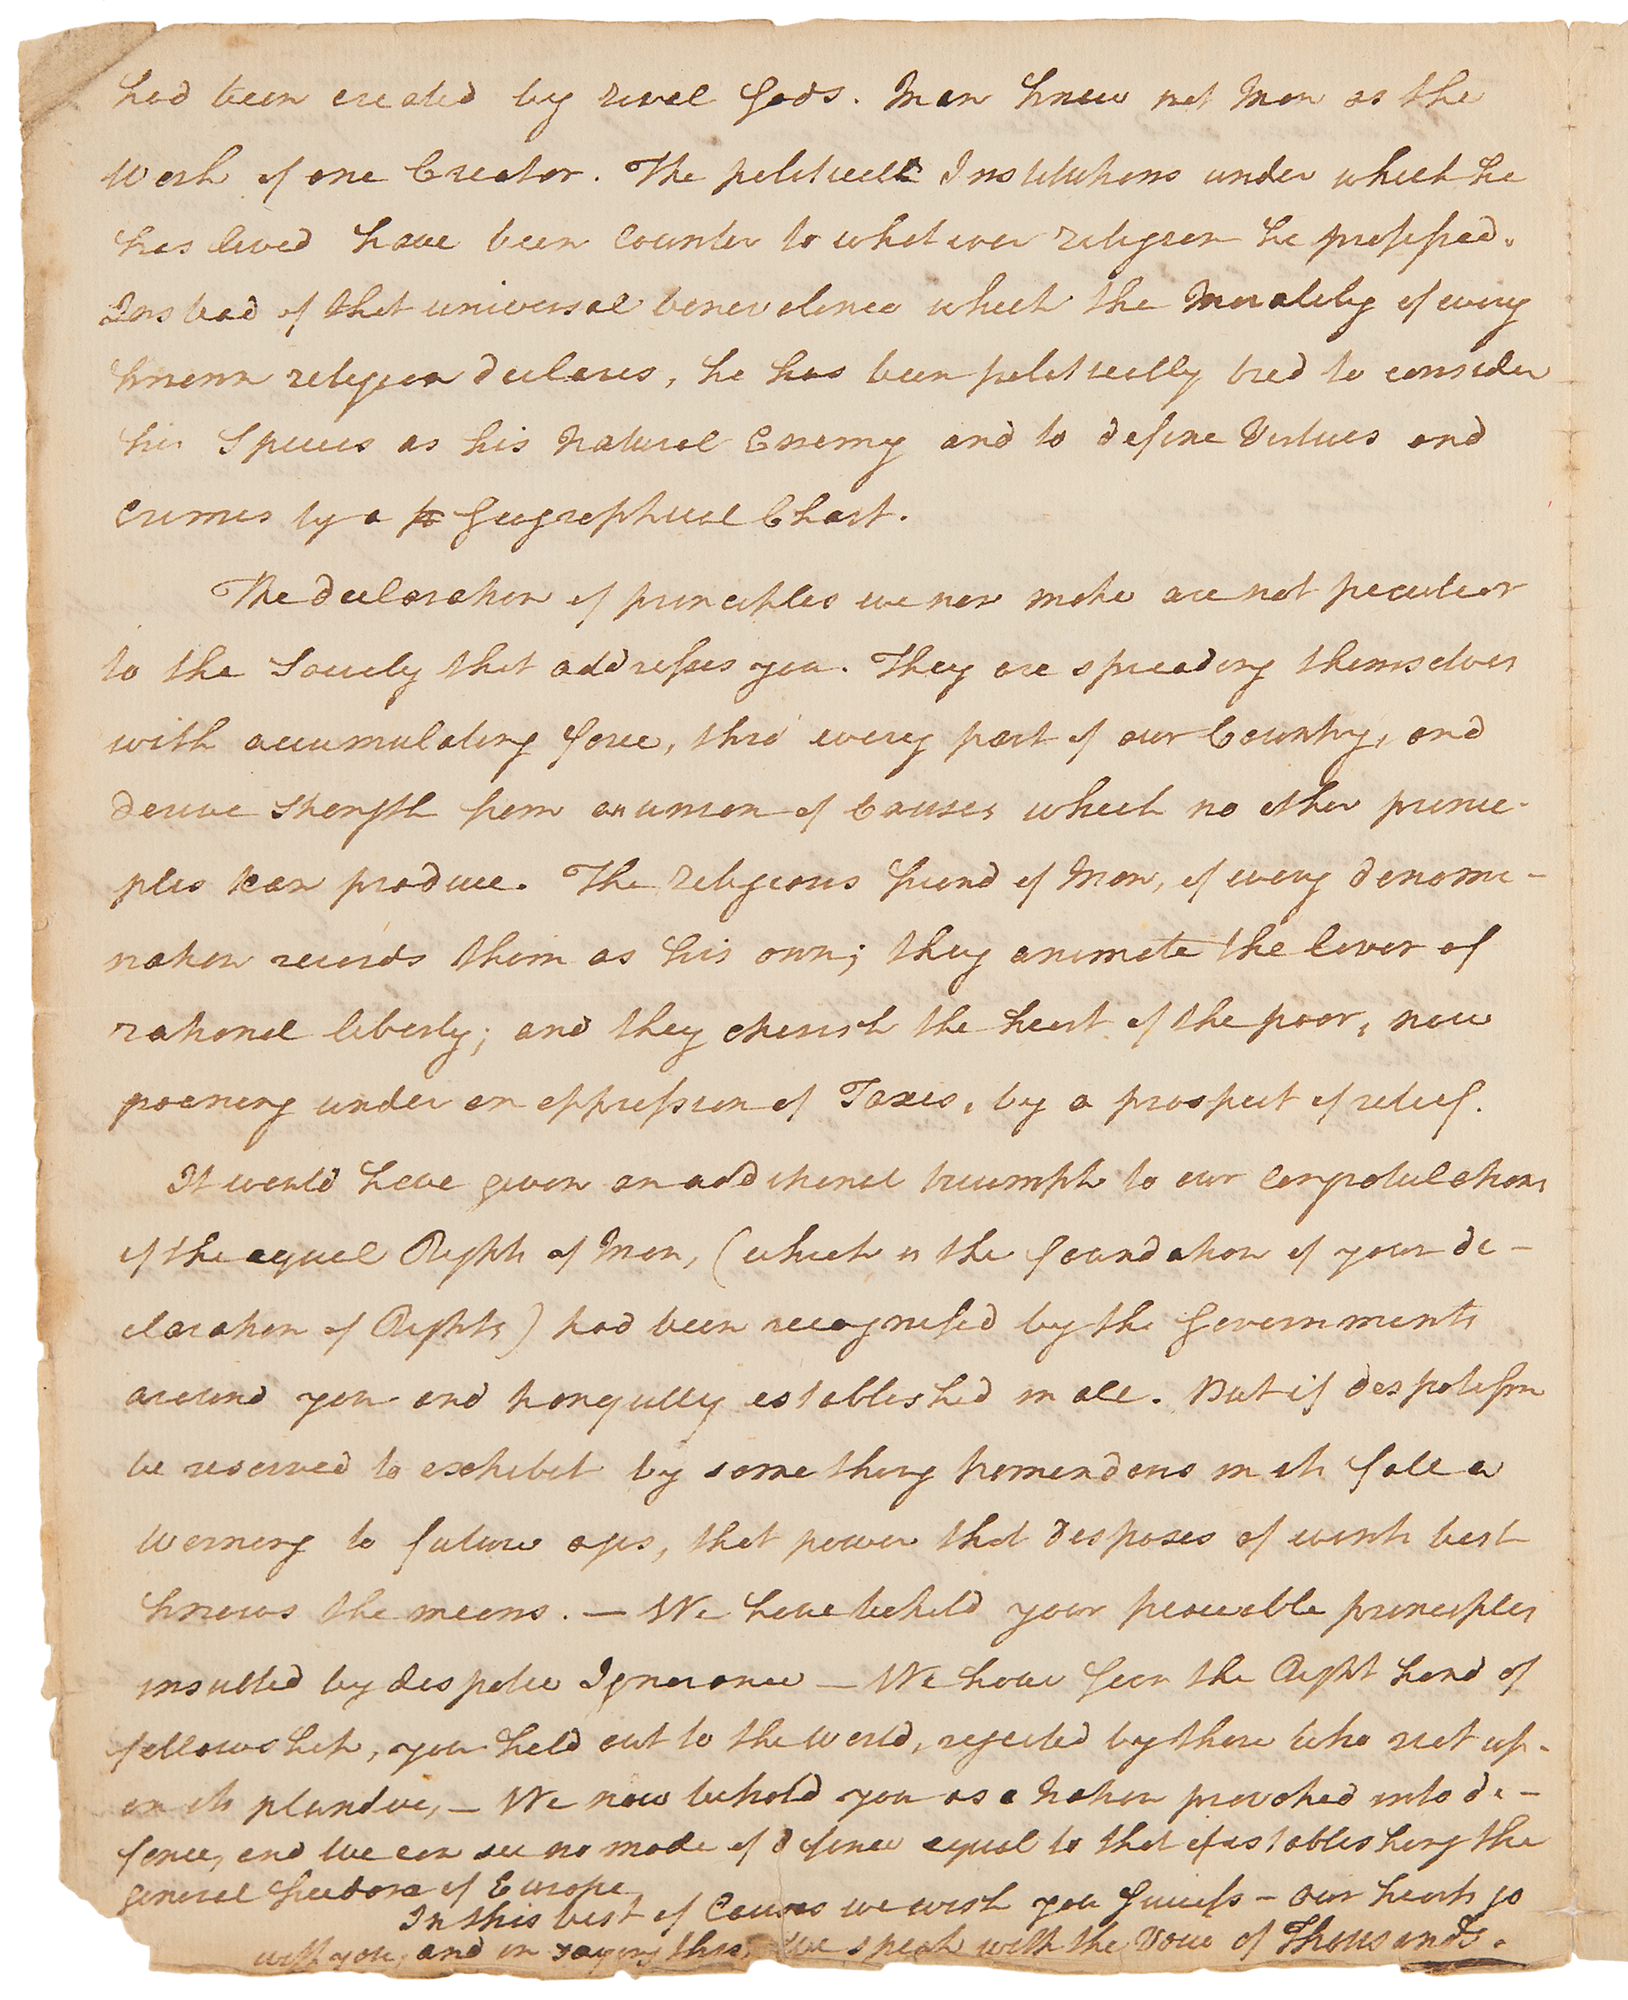 had been created by rival Gods. Man knew not Man as the
Work of one Creator. The political Institutions under which he
has lived have been Counter to whatever religion he professed.
Instead of that universal benevolence which the Morality of every
known religion declares, he has been politically bred to consider
his Species as his Natural Enemy and to define Virtues and
Crimes by a Geographical Chart.
The declaration of principles we now make are not peculiar
to the Society that addresses you. They are spreading themselves
with accumulating force, thro' every part of our Country, and
derive Strength from an union of Causes which no other princi-
ples can produce. The religious friend of Man, of every denomi-
nation records them as his own; they animate the lover of
rational liberty; and they cherish the heart of the poor, now
groaning under an oppression of Taxes, by a prospect of relief.
It would have given an additional triumph to our Congratulations
if the equal Rights of Man, (which is the foundation of your de-
claration of Rights) had been recognised by the Governments
around you and tranquilly established in all. But if despotism
be reserved to exhibit by some thing tremendous in its fall a
Warning to future ages, that power that disposes of events best
knows the means. — We have beheld your peaceable principles
insulted by despotic Ignorance — We have seen the Right hand of
fellowship, you held out to the World, rejected by those who riot up-
on its plunder, — We now behold you as a Nation provoked into de-
fence, and we can see no mode of defence equal to that of establishing the
general freedom of Europe.
In this best of Causes we wish you Success — Our hearts go
with you, and in saying this, we speak with the Voice of Thousands.